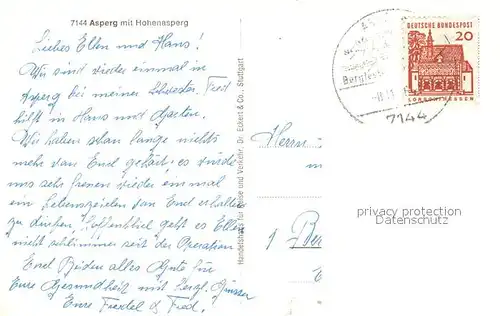 7144 Asperg mit Hohenasperg
Liebes Ellen und Hans!
Wir sind wieder einmal in
Asperg bei meiner Schwester. Fred
hilft in Haus und Garten.
Wir haben schon lange nichts
mehr von Euch gehört; es würde
uns sehr freuen wieder einmal
ein Lebenszeichen von Euch erhalten
zu dürfen. Hoffentlich geht es Ellen
nicht schlimmer seit der Operation
Euch Beiden alles Gute für
Eure Gesundheit mit herzl. Grüssen
Eure Friedel & Fred!
Handelshaus für Reise und Verkehr, Dr. Eckert & Co., Stuttgart
DEUTSCHE BUNDESPOST
20
LORSCH/HESSEN
7144
Herrn
privacy protection
Datenschutz
1